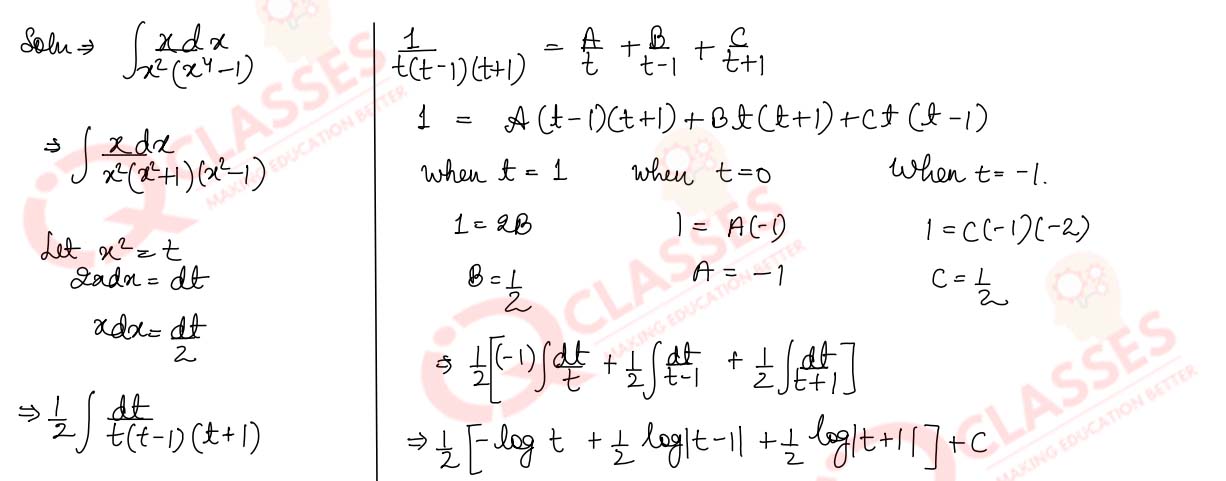 Soln ⇒ ∫ x dx / x²(x⁴-1)
⇒ ∫ x dx / x²(x²+1)(x²-1)
Let x² = t
2xdx = dt
xdx = dt/2
⇒ 1/2 ∫ dt / t(t-1)(t+1)
1 / t(t-1)(t+1) = A/t + B/t-1 + C/t+1
1 = A(t-1)(t+1) + Bt(t+1) + Ct(t-1)
when t = 1 when t=0 When t= -1.
1 = 2B 1 = A(-1) 1 = C(-1)(-2)
B = 1/2 A = -1 C = 1/2
⇒ 1/2 [(-1) ∫ dt/t + 1/2 ∫ dt/t-1 + 1/2 ∫ dt/t+1]
⇒ 1/2 [-log t + 1/2 log|t-1| + 1/2 log|t+1|] + C
CLASSES
MAKING EDUCATION BETTER
CLASSES
MAKING EDUCATION BETTER
CLASSES
MAKING EDUCATION BETTER